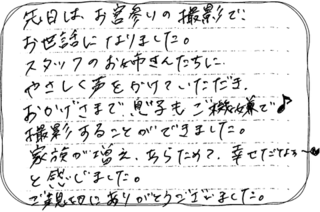 先日は、お宮参りの撮影で、
お世話になりました。
スタッフのお姉さんたちに
やさしく声をかけていただき
おかげさまで息子もご機嫌で♪
撮影することができました。
家族が増え、あらためて、幸せだなぁ〜
と感じました。
ご親切にありがとうございました。